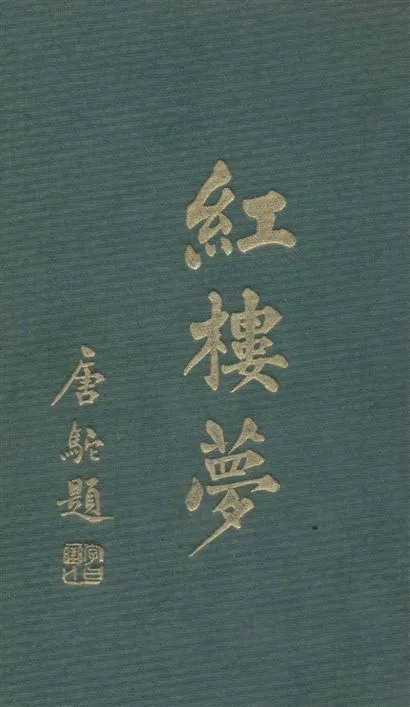 紅樓夢
唐駝題